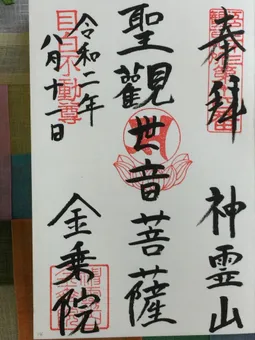 奉拝
神霊山
聖観世音菩薩
令和二年
八月十一日
目白不動尊
金乗院